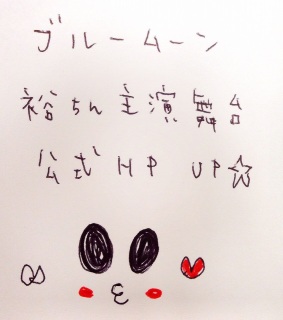 ブルームーン
裕ちん主演舞台
公式HP UP☆